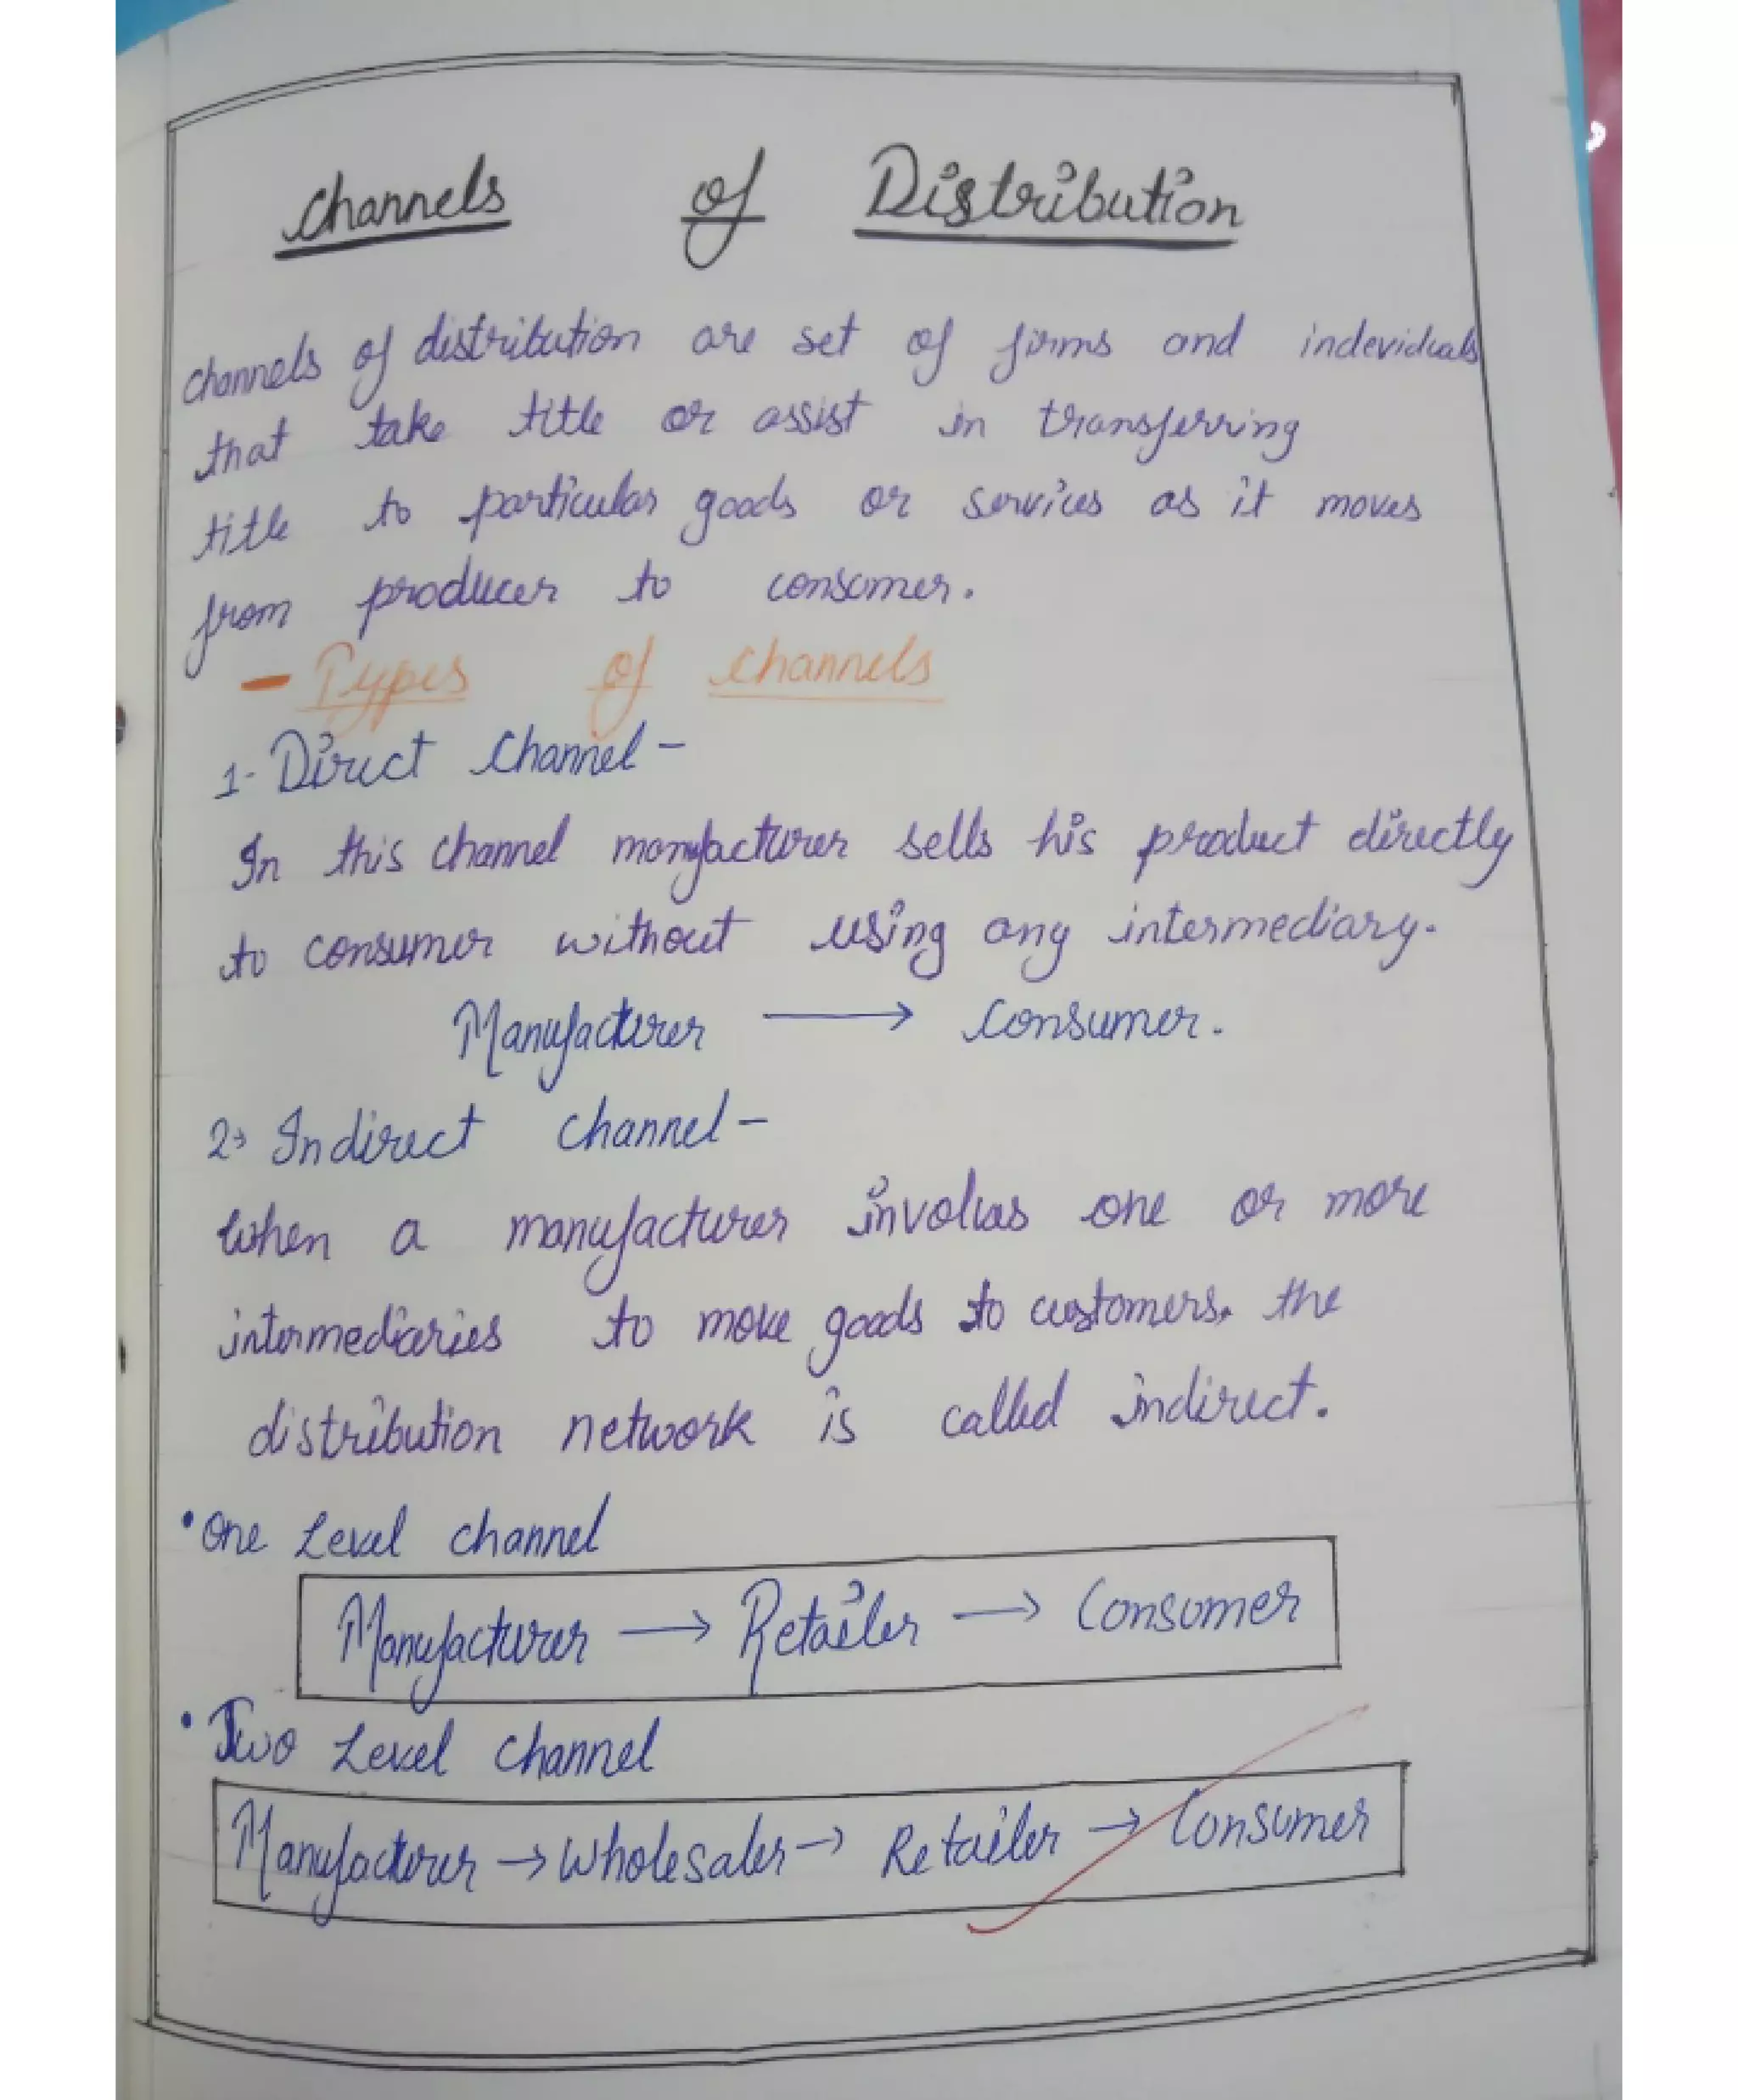 Channels of Distribution
Channels of distribution are set of firms and indeviduals
that take title or assist in transferring
title to particular goods or services as it moves
from producer to consumer.
- Types of channels
1- Direct Channel -
In this channel manufacturer sells his product directly
to consumer without using any intermediary.
Manufacturer → Consumer.
2→ Indirect channel -
When a manufacturer involves one or more
intermediaries to move goods to customers, the
distribution network is called indirect.
• One Level channel
Manufacturer → Retailer → Consumer
• Two Level channel
Manufacturer → Wholesaler → Retailer → Consumer